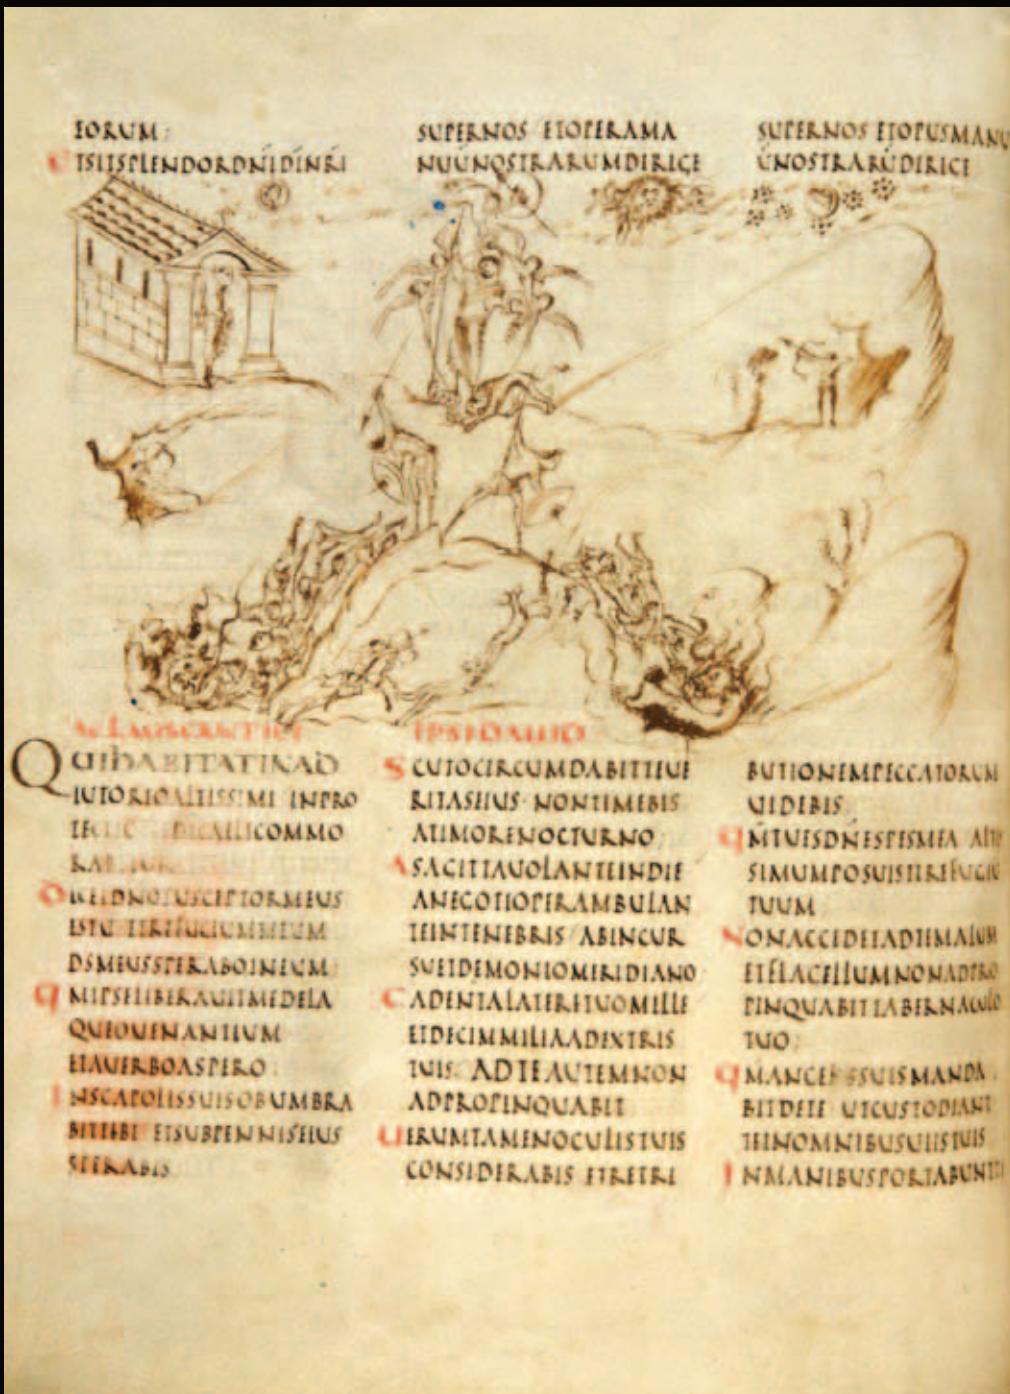 EORUM:
ETSITSPLENDORDNIDINRI
SUPERNOS ETOPERAMA
NUUNOSTRARUMDIRIGE
SUPERNOS ETOPUSMANU
UNOSTRARUDIRIGE
LAUSCANTICI
IPSIDAUID
QUIHABITATINAD
IUTORIOALTISSIMI INPRO
COMMO
DICETDNOSUSCEPTORMEUS
ESTU ETREFUGIUMMEUM
DSMEUSSPERABOINEUM
QMIPSELIBERAUITMEDELA
QUEOUENANTIUM
ETAUERBOASPERO:
INSCAPULISSUISOBUMBRA
BITTIBI ETSUBPENNISEIUS
SPERABIS
SCUTOCIRCUMDABITTEUE
RITASEIUS NONTIMEBIS
ATIMORENOCTURNO:
ASAGITTAUOLANTEINDIE
ANEGOTIOPERAMBULAN
TEINTENEBRIS ABINCUR
SUETDEMONIOMERIDIANO
CADENTALATERETUOMILLE
ETDECEMMILIAADEXTRIS
TUIS: ADTEAUTEMNON
ADPROPINQUABIT
UERUMTAMENOCULISTUIS
CONSIDERABIS ETRETRI
BUTIONEMPECCATORUM
UIDEBIS:
QMTUESDNESPESMEA ALTIS
SIMUMPOSUISTIREFUGIU
TUUM
NONACCIDETADTEMALUM
ETFLAGELLUMNONADPRO
PINQUABITTABERNACULO
TUO:
QMANGELISSUISMANDA
BITDETE UTCUSTODIANT
TEINOMNIBUSUIISTUIS
INMANIBUSPORTABUNTTE